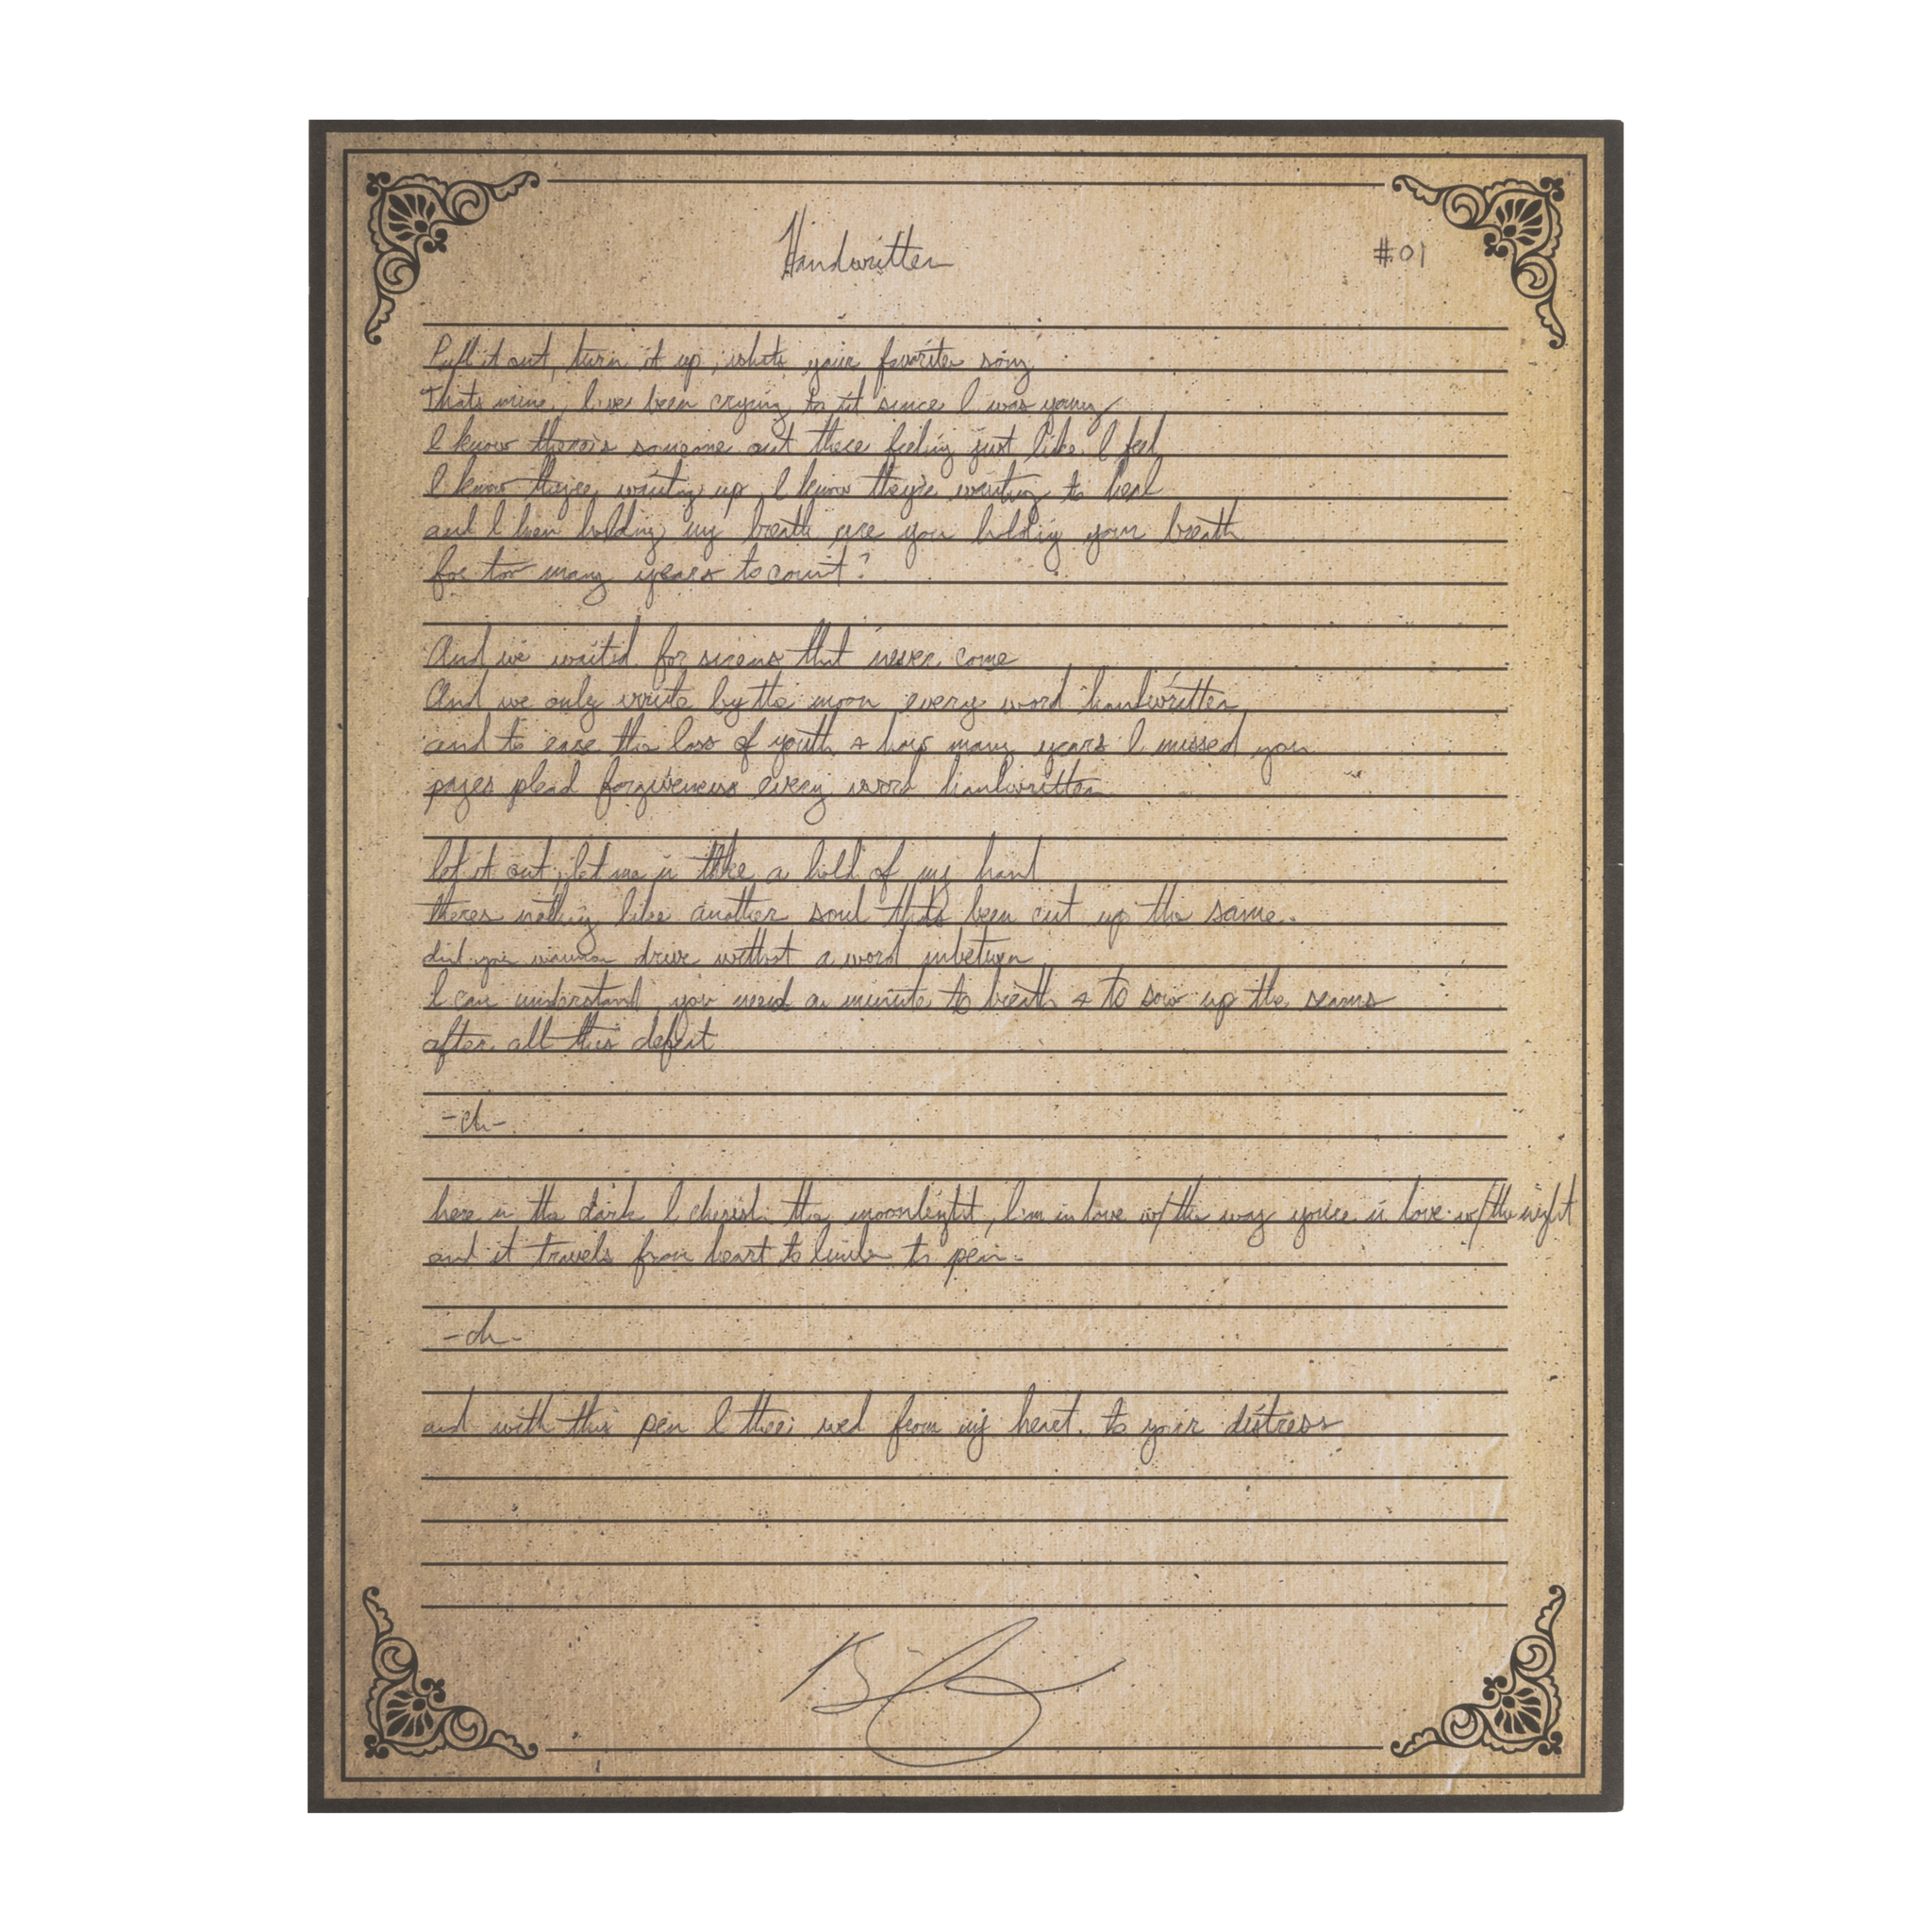 Handwritten
#01
Pull it out, turn it up, whats your favorite song
Thats mine, I've been crying to it since I was young
I know there's someone out there feeling just like I feel
I know they're waiting up, I know they're waiting to heal
and I been holding my breath are you holding your breath
for too many years to count?
And we waited for sirens that never come
And we only write by the moon every word handwritten
and to ease the loss of youth & how many years I missed you
pages plead forgiveness every word handwritten
let it out, let me in take a hold of my hand
theres nothing like another soul thats been cut up the same.
did you wanna drive without a word inbetween
I can understand, you need a minute to breath & to sow up the seams
after all this defeat
-ch-
here in the dark I cherish the moonlight, I'm in love w/ the way you're in love w/ the night
and it travels from heart to limb to pen.
-ch-
and with this pen I thee wed from my heart to your distress